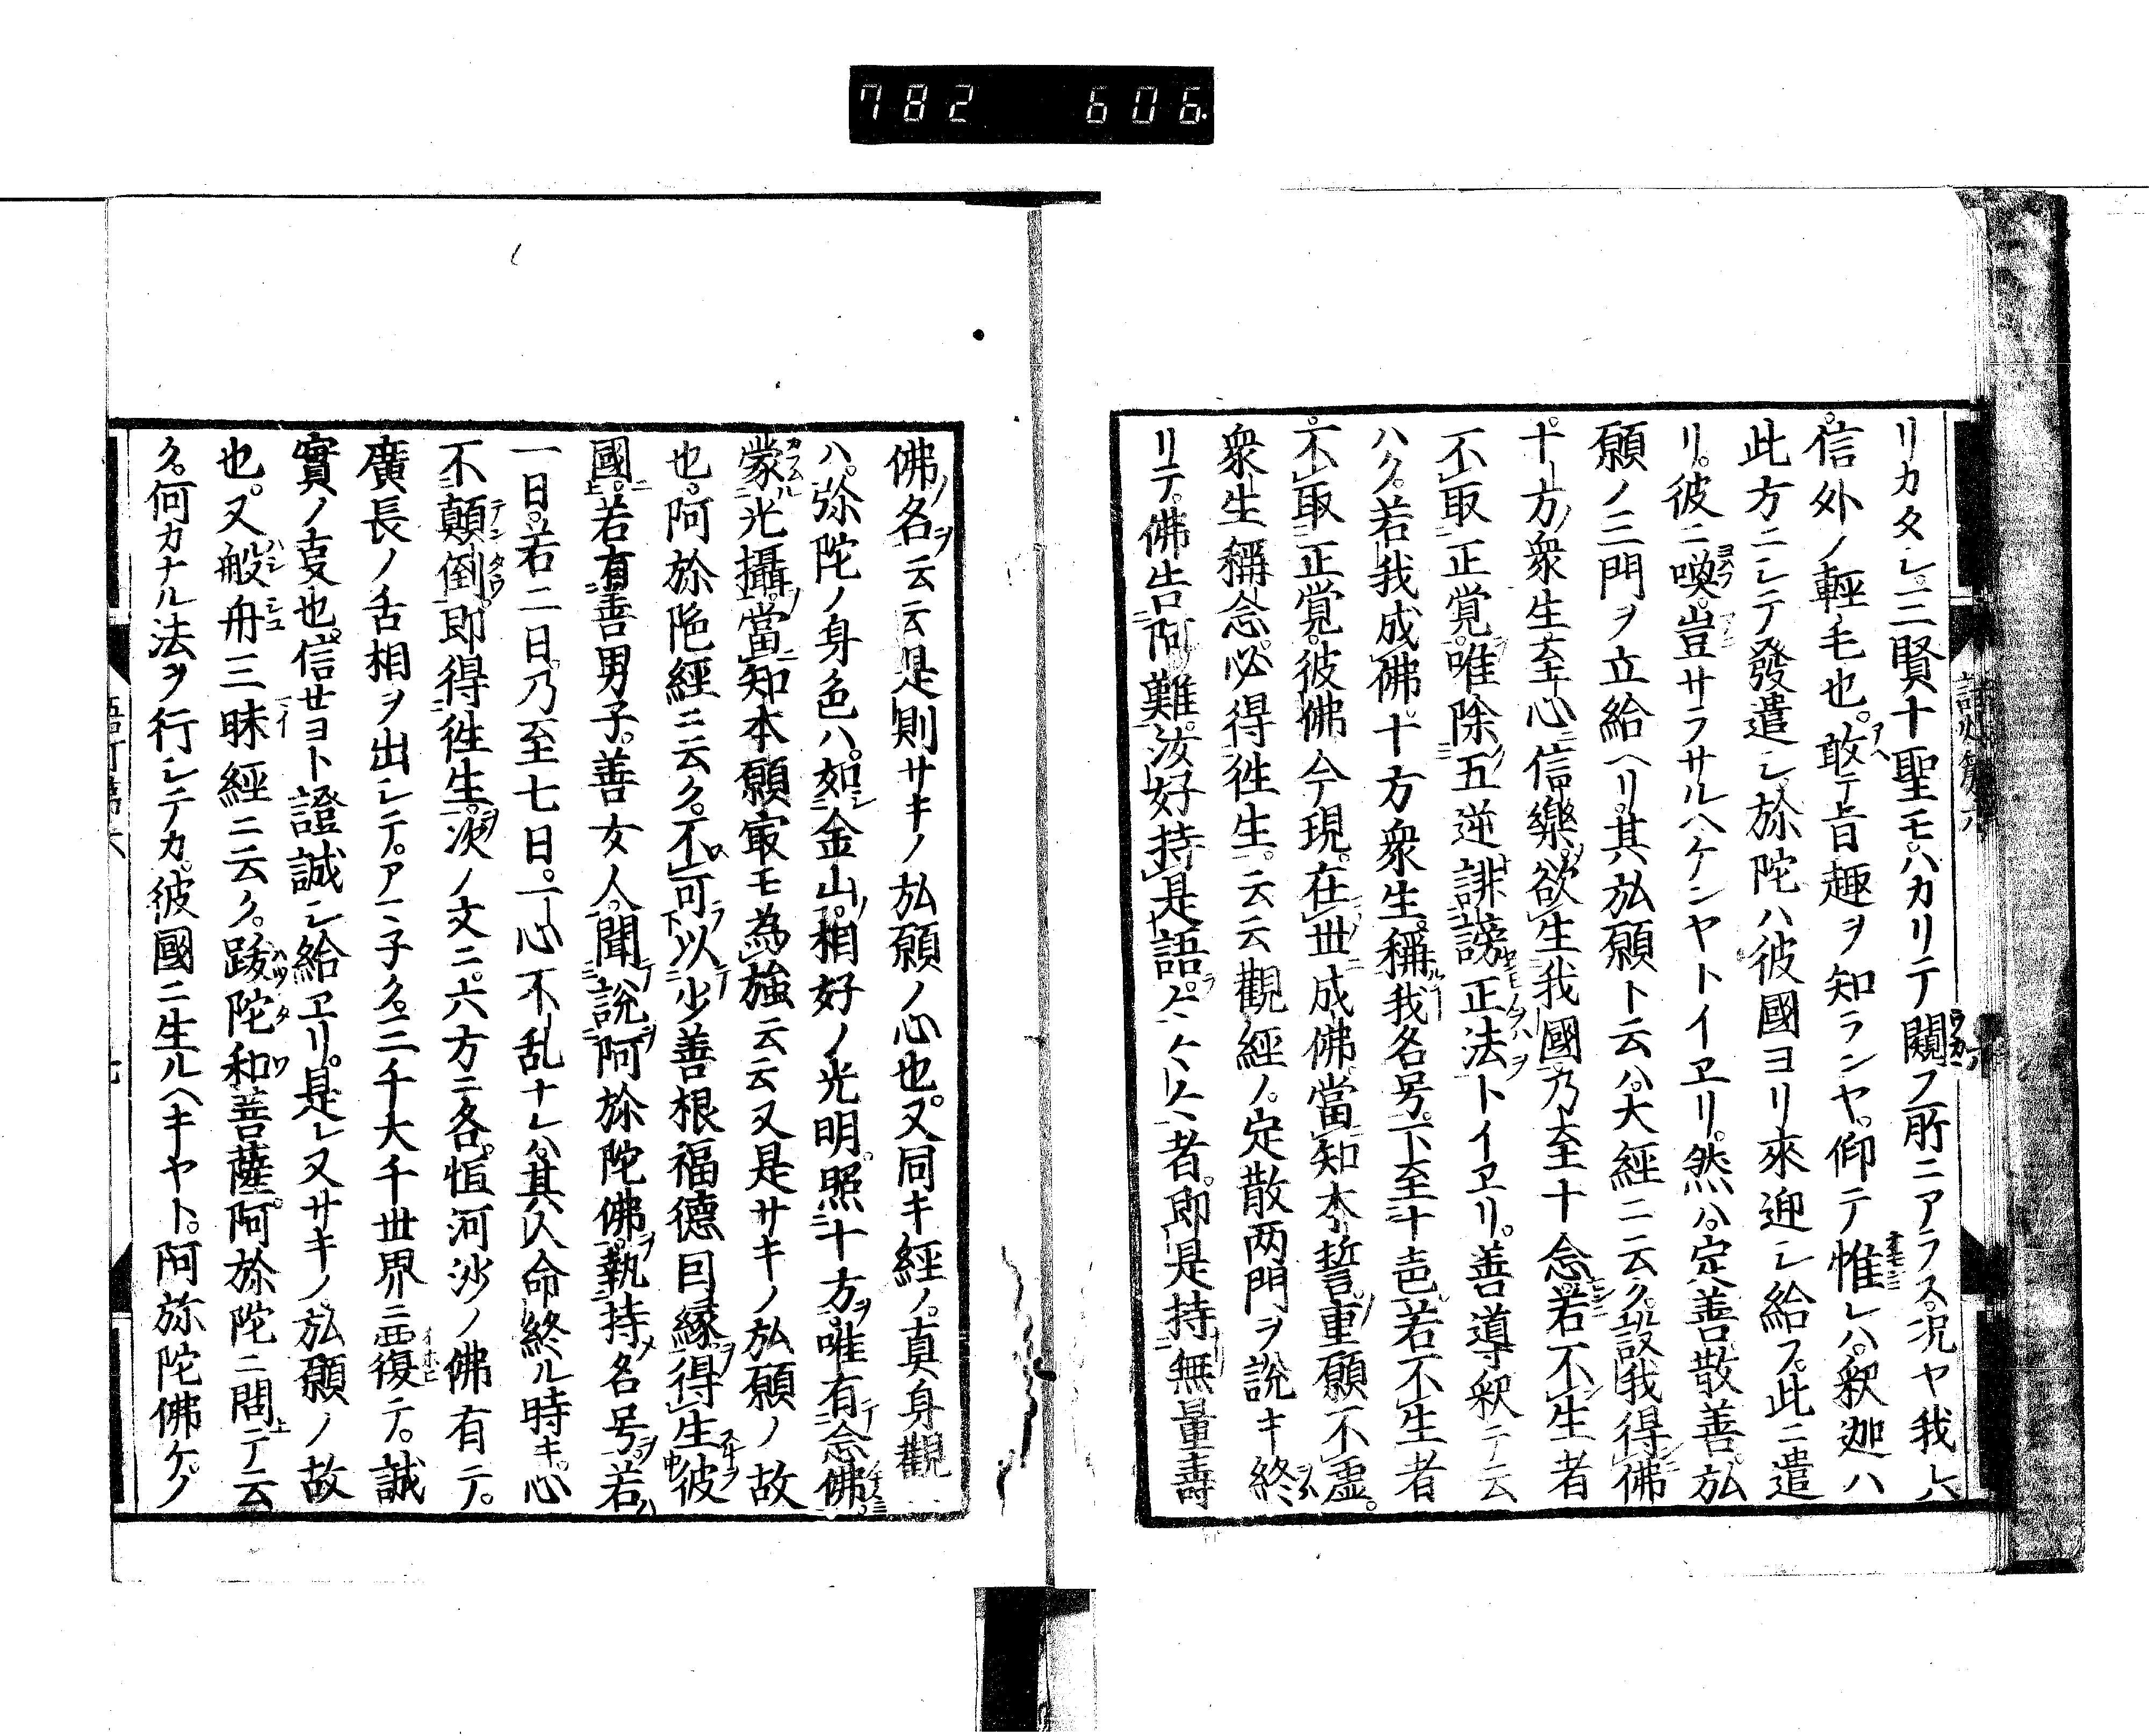 782 606
リカタシ。三賢十聖モ。ハカリテ闚フ所ニアラス。況ヤ我レ
信外ノ輕毛也。敢テ旨趣ヲ知ランヤ。仰テ惟レハ。釈迦ハ
此方ニシテ發遣シ。弥陀ハ彼國ヨリ來迎シ給フ。此ニ遣
リ。彼ニ喚。豈サラサルヘケンヤトイヱリ。然ハ。定善散善。弘
願ノ三門ヲ立給ヘリ。其弘願ト云ハ。大經ニ云ク。設我得佛
十方衆生至心信樂。欲生我國乃至十念。若不生者
不取正覚。唯除五逆誹謗正法トイヱリ。善導釈テ云
ハク。若我成佛。十方衆生。稱我名号。下至十声。若不生者
不取正覚。彼佛今現。在世成佛。當知本誓重願不虚。
衆生稱念。必得往生。云云觀經ノ。定散両門ヲ說キ終
リテ。佛告阿難。汝好持是語。持是語者。即是持無量壽
佛名云云是則サキノ弘願ノ心也。又同キ經ノ。真身觀
ハ。弥陀ノ身色ハ。如金山。相好ノ光明。照十方。唯有念佛
蒙光攝。當知本願㝡モ為強云云又是サキノ弘願ノ故
也。阿弥陀經ニ云ク。不可以少善根福德因縁。得生彼
國。若有善男子。善女人。聞說阿弥陀佛。執持名号。若
一日。若二日。乃至七日。一心不乱ナレハ。其人命終ル時キ。心
不顛倒。即得往生。次ノ文ニ。六方ニ各。恒河沙ノ佛有テ。
廣長ノ舌相ヲ出シテ。アマネク。三千大千世界ニ覆テ。誠
實ノ叓也。信セヨト證誠シ給ヱリ。是レ又サキノ弘願ノ故
也。又般舟三昧經ニ云ク。跋陀和菩薩。阿弥陀ニ問テ云
ク。何カナル法ヲ行シテカ。彼國ニ生ルヘキヤト。阿弥陀佛ケノ